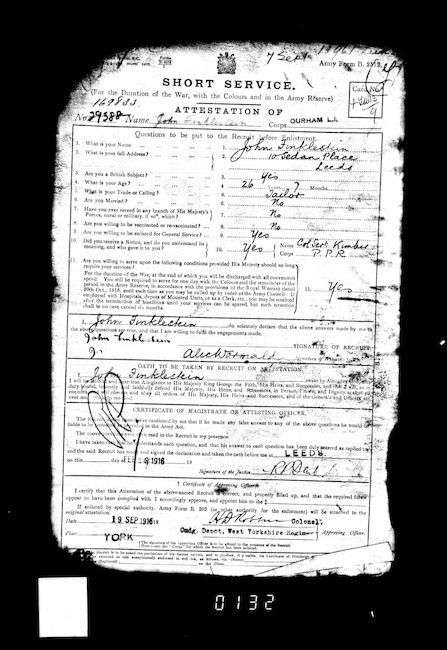 7 Sept 1916
Army Form B. 2512.
SHORT SERVICE.
(For the Duration of the War, with the Colours and in the Army Reserve)
169833
ATTESTATION OF
Card No.
No. 29388 Name John Finklestein Corps DURHAM L.I.
Questions to be put to the Recruit before Enlistment.
1. What is your Name 1. John Finklestein
2. What is your full Address? 2. 10 Sedan Place
Leeds
3. Are you a British Subject? 3. Yes
4. What is your Age? 4. 26 Years 7 Months.
5. What is your Trade or Calling? 5. Tailor
6. Are you Married? 6. No
7. Have you ever served in any branch of His Majesty's
Forces, naval or military, if so, which? 7. No
8. Are you willing to be vaccinated or re-vaccinated? 8. No
9. Are you willing to be enlisted for General Service? 9. Yes
10. Did you receive a Notice, and do you understand its
meaning, and who gave it to you? 10. Yes Name Col Sergt
Corps P.P.R.
11. Are you willing to serve upon the following conditions provided His Majesty should so long
require your services?
For the duration of the War, at the end of which you will be discharged with all convenient
speed. You will be required to serve for one day with the Colours and the remainder of
the period in the Army Reserve, in accordance with the provisions of the Royal Warrant dated
20th Oct., 1915, until such time as you may be called up by order of the Army Council. If
employed with Hospitals, depots of Mounted Units, or as a Clerk, etc., you may be retained
after the termination of hostilities until your services can be spared, but such retention
shall in no case exceed six months. 11. Yes
I, John Finklestein do solemnly declare that the above answers made by me to
the above questions are true, and that I am willing to fulfil the engagements made.
John Finklestein SIGNATURE OF RECRUIT
Alec Wormald
OATH TO BE TAKEN BY RECRUIT ON ATTESTATION.
I, John Finklestein swear by Almighty God
will be faithful and bear true Allegiance to His Majesty King George the Fifth, His Heirs, and Successors, and that I will, as in
duty bound, honestly and faithfully defend His Majesty, His Heirs, and Successors, in Person, Crown, and Dignity against all
enemies, and will observe and obey all orders of His Majesty, His Heirs, and Successors, and of the Generals and Officers
CERTIFICATE OF MAGISTRATE OR ATTESTING OFFICER.
The Recruit above named was cautioned by me that if he made any false answer to any of the above questions he would be
liable to be punished as provided in the Army Act.
The above questions were then read to the Recruit in my presence
I have taken care that he understands each question, and that his answer to each question has been duly entered as replied to
and the said Recruit has made and signed the declaration and taken the oath before me at LEEDS.
on this day of 1916
Signature of the Justice
† Certificate of Approving Officer.
I certify that this Attestation of the above-named Recruit is correct, and properly filled up, and that the required forms
appear to have been complied with. I accordingly approve, and appoint him to the ‡
If enlisted by special authority, Army Form B. 203 (or other authority for the enlistment) will be attached to the
original attestation.
Date 19 SEP 1916 Colonel
Cmdg. Depot, West Yorkshire Regiment Approving Officer.
Place YORK
† The signature of the Approving Officer is to be affixed in the presence of the Recruit.
‡ Here insert the "Corps" for which the Recruit has been enlisted.
0132